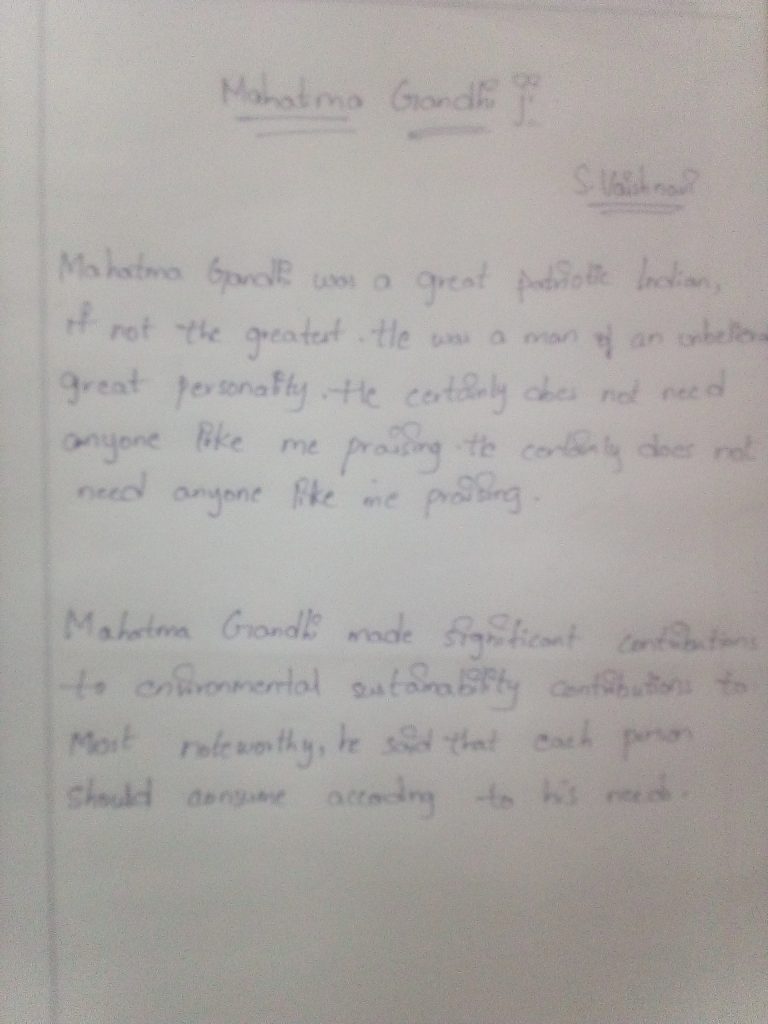 Mahatma Gandhi ji
S. Vaishnavi
Mahatma Gandhi was a great patriotic Indian,
if not the greatest. He was a man of an
great personality. He certainly does not need
anyone like me praising. He certainly does not
need anyone like me praising.
Mahatma Gandhi made significant contributions
to environmental sustainability contributions to
Most noteworthy, he said that each person
should consume according to his needs.